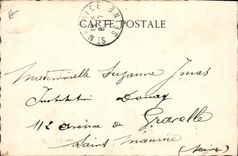 CARTE POSTALE
ST MAURICE SEINE
Mademoiselle Suzanne Jouas
Institution Donay
112 avenue de Gravelle
Saint Maurice
(Seine)